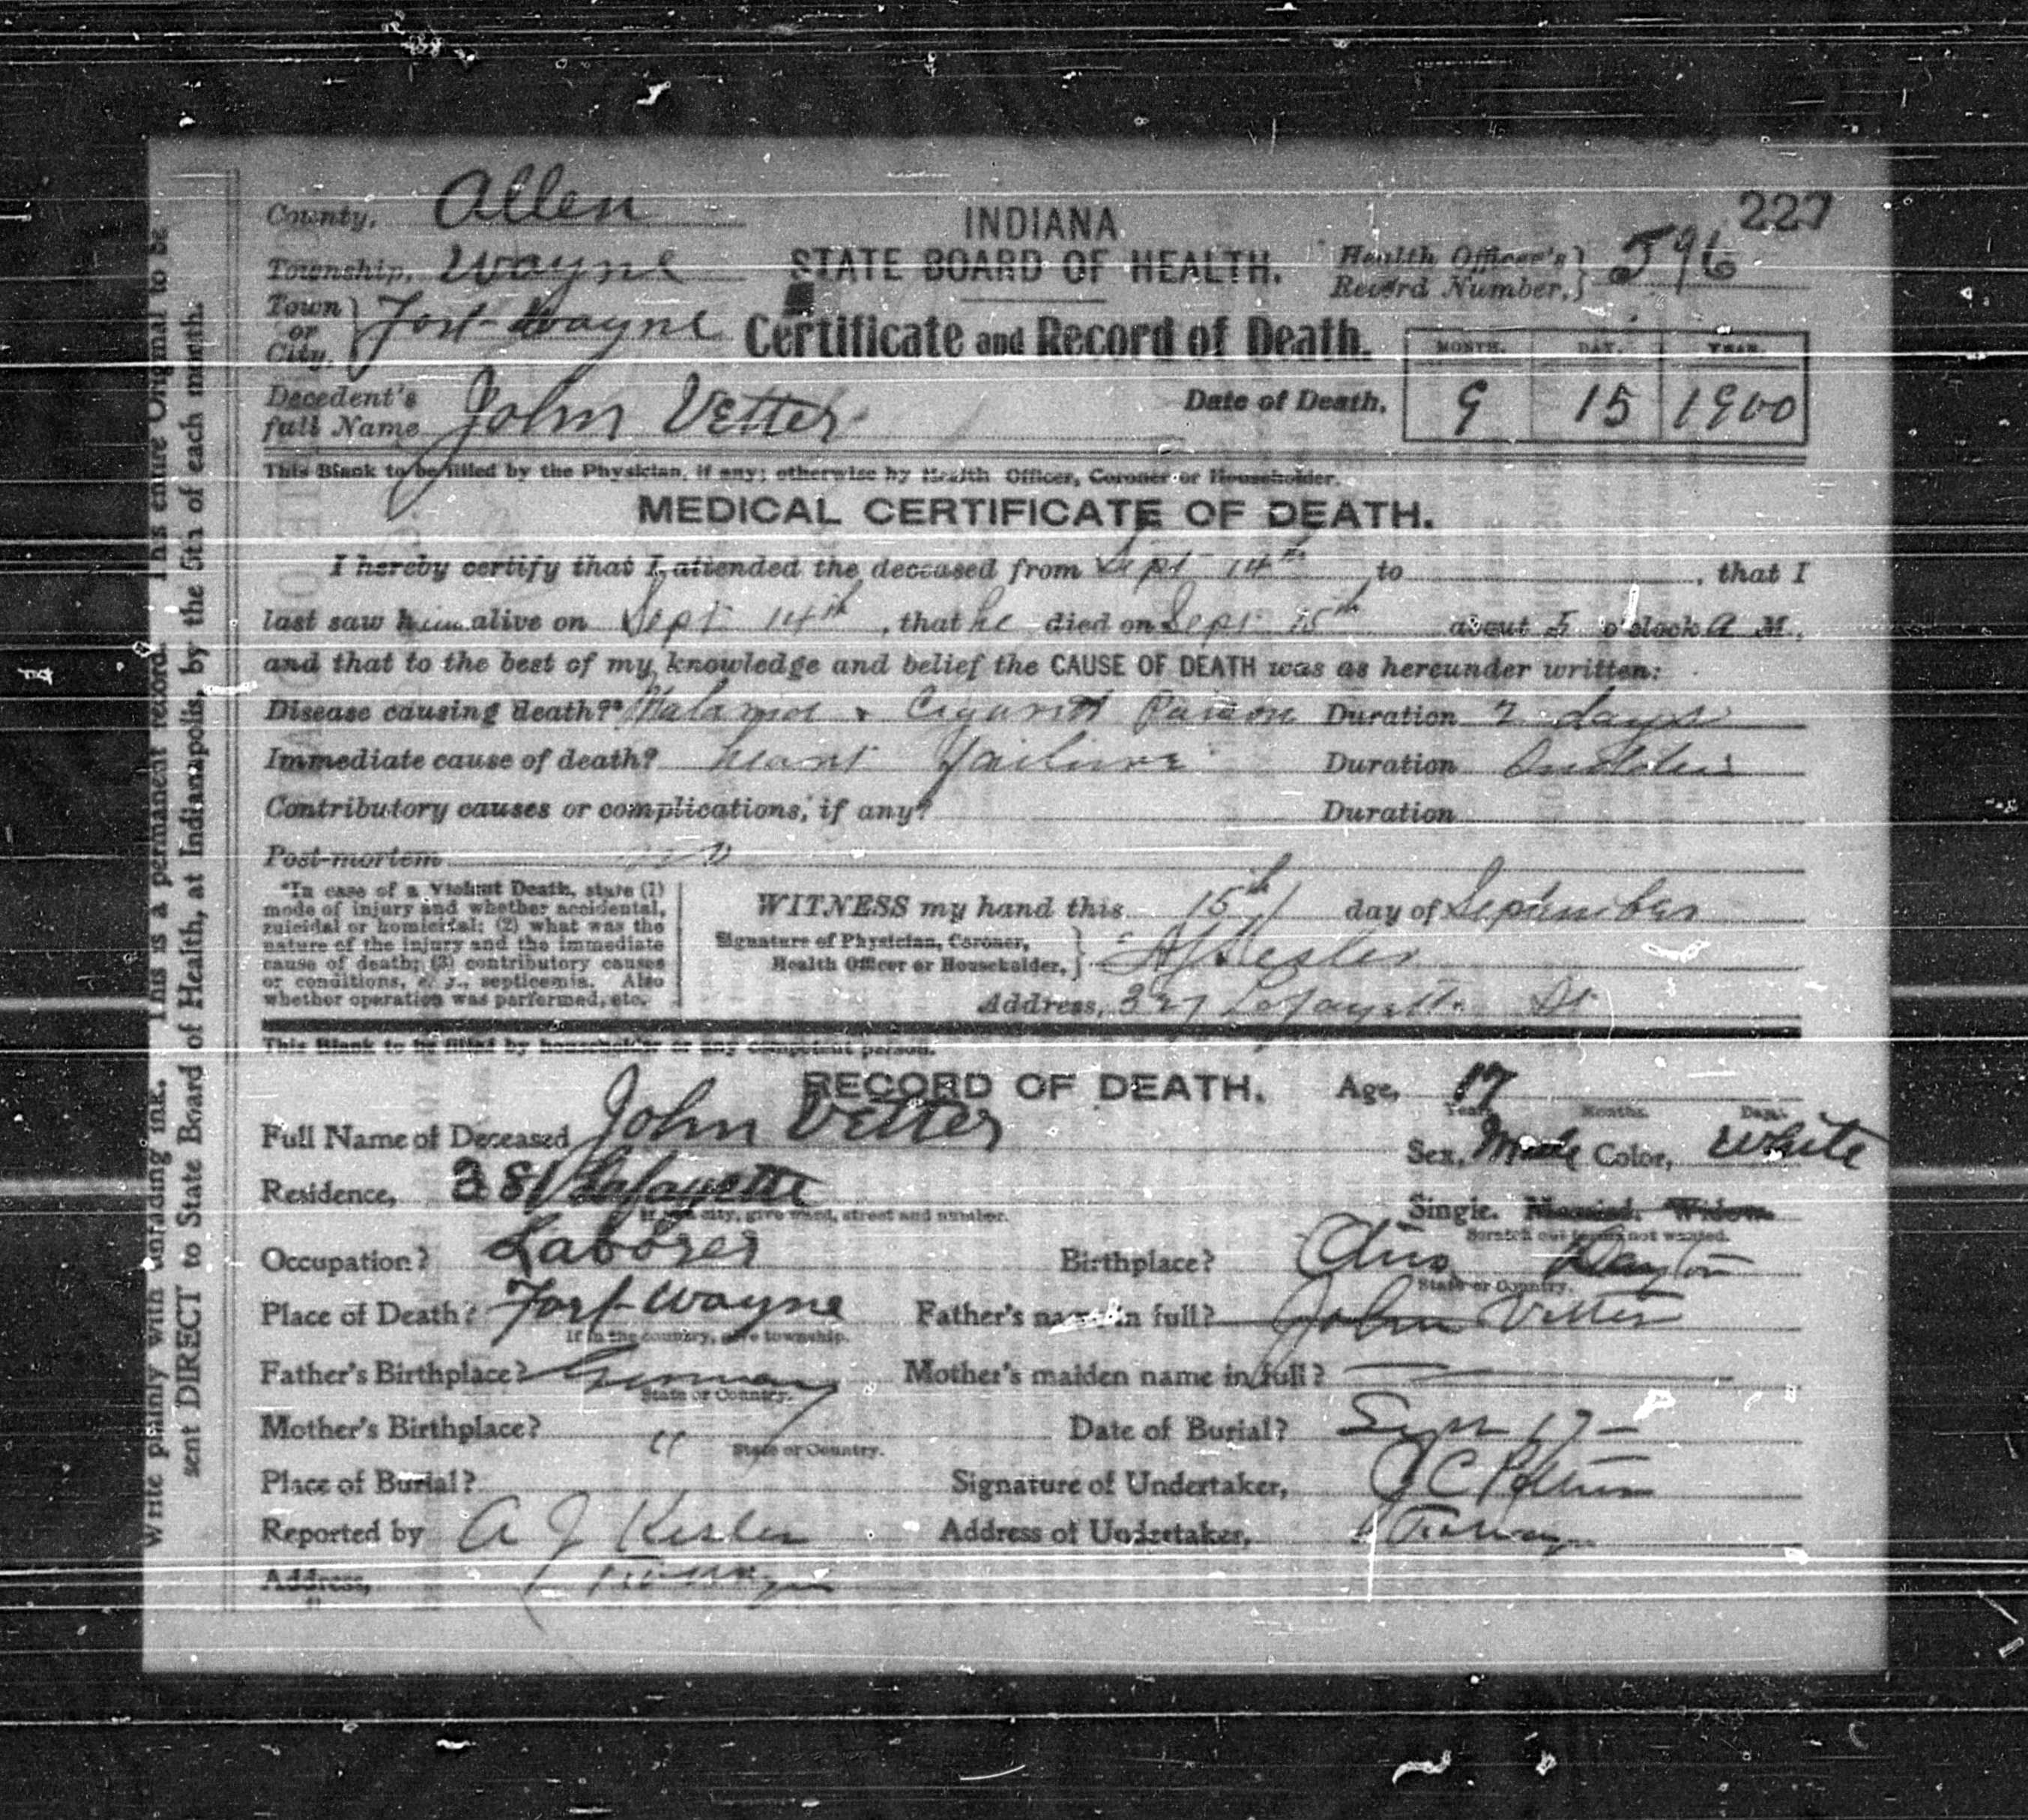 227
County, Allen
INDIANA
STATE BOARD OF HEALTH.
Health Officer's Record Number, 596
Township, Wayne
Town or City, Fort Wayne
Certificate and Record of Death.
MONTH. DAY. YEAR.
Decedent's full Name John Vetter
Date of Death, 9 15 1900
This Blank to be filled by the Physician, if any; otherwise by Health Officer, Coroner or Householder.
MEDICAL CERTIFICATE OF DEATH.
I hereby certify that I attended the deceased from Sept 14th to , that I
last saw him alive on Sept 14th, that he died on Sept 15th about 5 o'clock A M.,
and that to the best of my knowledge and belief the CAUSE OF DEATH was as hereunder written:
Disease causing death?* & Duration days
Immediate cause of death? heart failure Duration
Contributory causes or complications, if any? Duration
Post-mortem no
*In case of a Violent Death, state (1)
mode of injury and whether accidental,
suicidal or homicidal; (2) what was the
nature of the injury and the immediate
cause of death; (3) contributory causes
or conditions, e. g., septicemia. Also
whether operation was performed, etc.
WITNESS my hand this 15th day of September
Signature of Physician, Coroner,
Health Officer or Householder, AJ Kesler
Address, 327 Lafayette St
This Blank to be filled by householder or any competent person.
RECORD OF DEATH. Age, 17
Years. Months. Days.
Full Name of Deceased John Vetter
Sex, Male Color, White
Residence, Lafayette
If in a city, give ward, street and number.
Single. Married. Widow.
Scratch out terms not wanted.
Occupation? Laborer
Birthplace? Ohio Dayton
State or Country.
Place of Death? Fort Wayne
If in the country, give township.
Father's name in full? John Vetter
Father's Birthplace? Germany
State or Country.
Mother's maiden name in full?
Mother's Birthplace? "
State or Country.
Date of Burial? Sept 17
Place of Burial?
Signature of Undertaker,
Reported by A J Kesler
Address of Undertaker, Ft Wayne
Address, Ft Wayne
Write plainly with unfading ink. This is a permanent record. This entire Original to be
sent DIRECT to State Board of Health, at Indianapolis, by the 5th of each month.